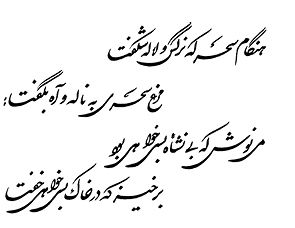 هنگام سحر که نرگس و لاله شکفت
مرغ سحری به ناله و آه بگفت؛
می نوش که بی نشاه بسی خواهی بود
برخیز که در خاک بسی خواهی خفت